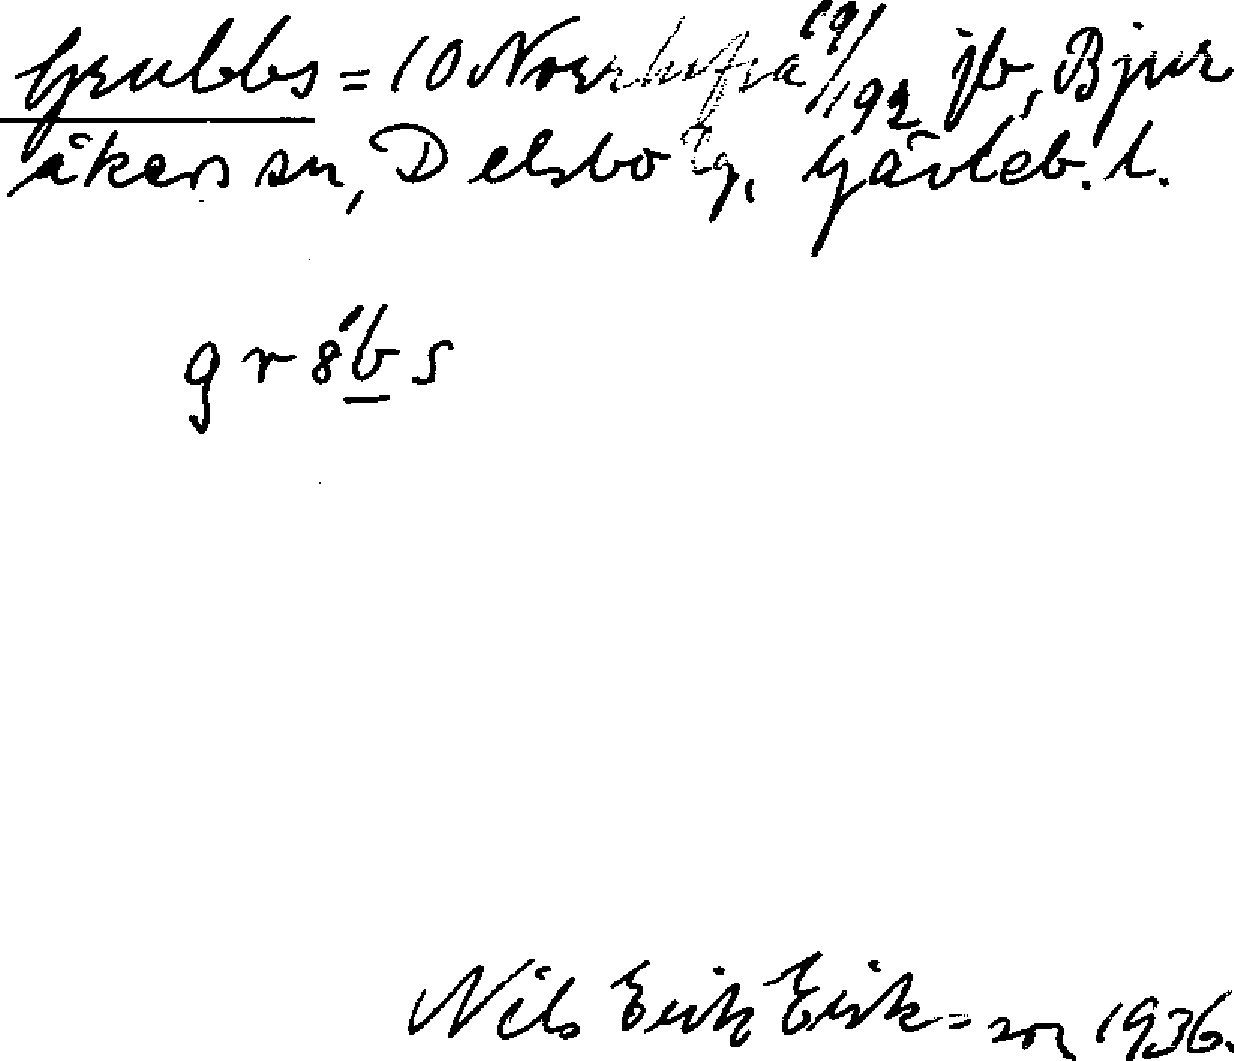 Grubbs = 10 Norrhafra 19/192 jb, Bjur
åkers sn, Delsbo tg, Gävleb. l.
gr8́b̲s
Nils Erik Erik=son 1936.